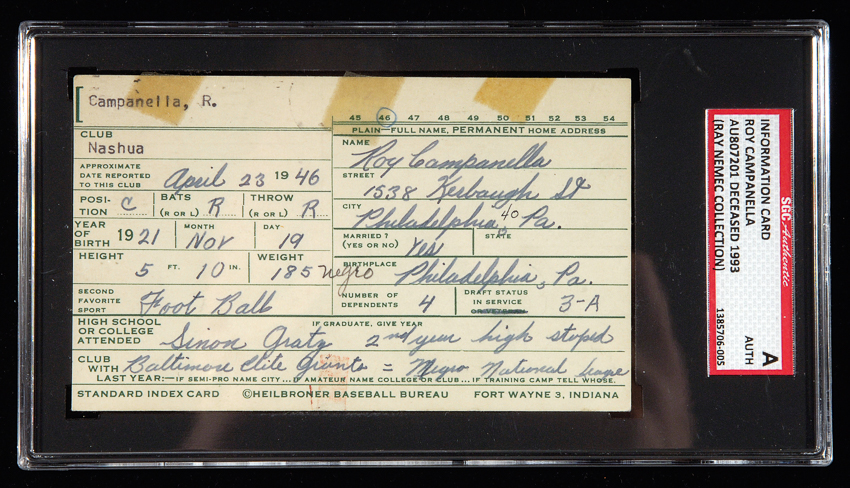 Campanella, R.
45 46 47 48 49 50 51 52 53 54
PLAIN—FULL NAME, PERMANENT HOME ADDRESS
CLUB
Nashua
NAME
Roy Campanella
APPROXIMATE DATE REPORTED TO THIS CLUB
April 23 1946
STREET
1538 Kerbaugh St
POSITION C
BATS (R OR L) R
THROW (R OR L) R
CITY
Philadelphia 40 Pa.
YEAR OF BIRTH 1921
MONTH Nov
DAY 19
MARRIED? (YES OR NO) Yes
STATE
HEIGHT
5 FT. 10 IN.
WEIGHT
185 negro
BIRTHPLACE
Philadelphia, Pa.
SECOND FAVORITE SPORT
Foot Ball
NUMBER OF DEPENDENTS 4
DRAFT STATUS IN SERVICE
3-A
HIGH SCHOOL OR COLLEGE ATTENDED
IF GRADUATE, GIVE YEAR
Simon Gratz 2nd year high stoped
CLUB WITH
Baltimore Elite Giants = Negro National League
LAST YEAR:—IF SEMI-PRO NAME CITY... AMATEUR NAME COLLEGE OR CLUB... IF TRAINING CAMP TELL WHOSE.
STANDARD INDEX CARD ©HEILBRONER BASEBALL BUREAU FORT WAYNE 3, INDIANA
SGC Authentic
INFORMATION CARD
ROY CAMPANELLA
AU807201 DECEASED 1993
(RAY NEMEC COLLECTION)
1385706-005
A
AUTH